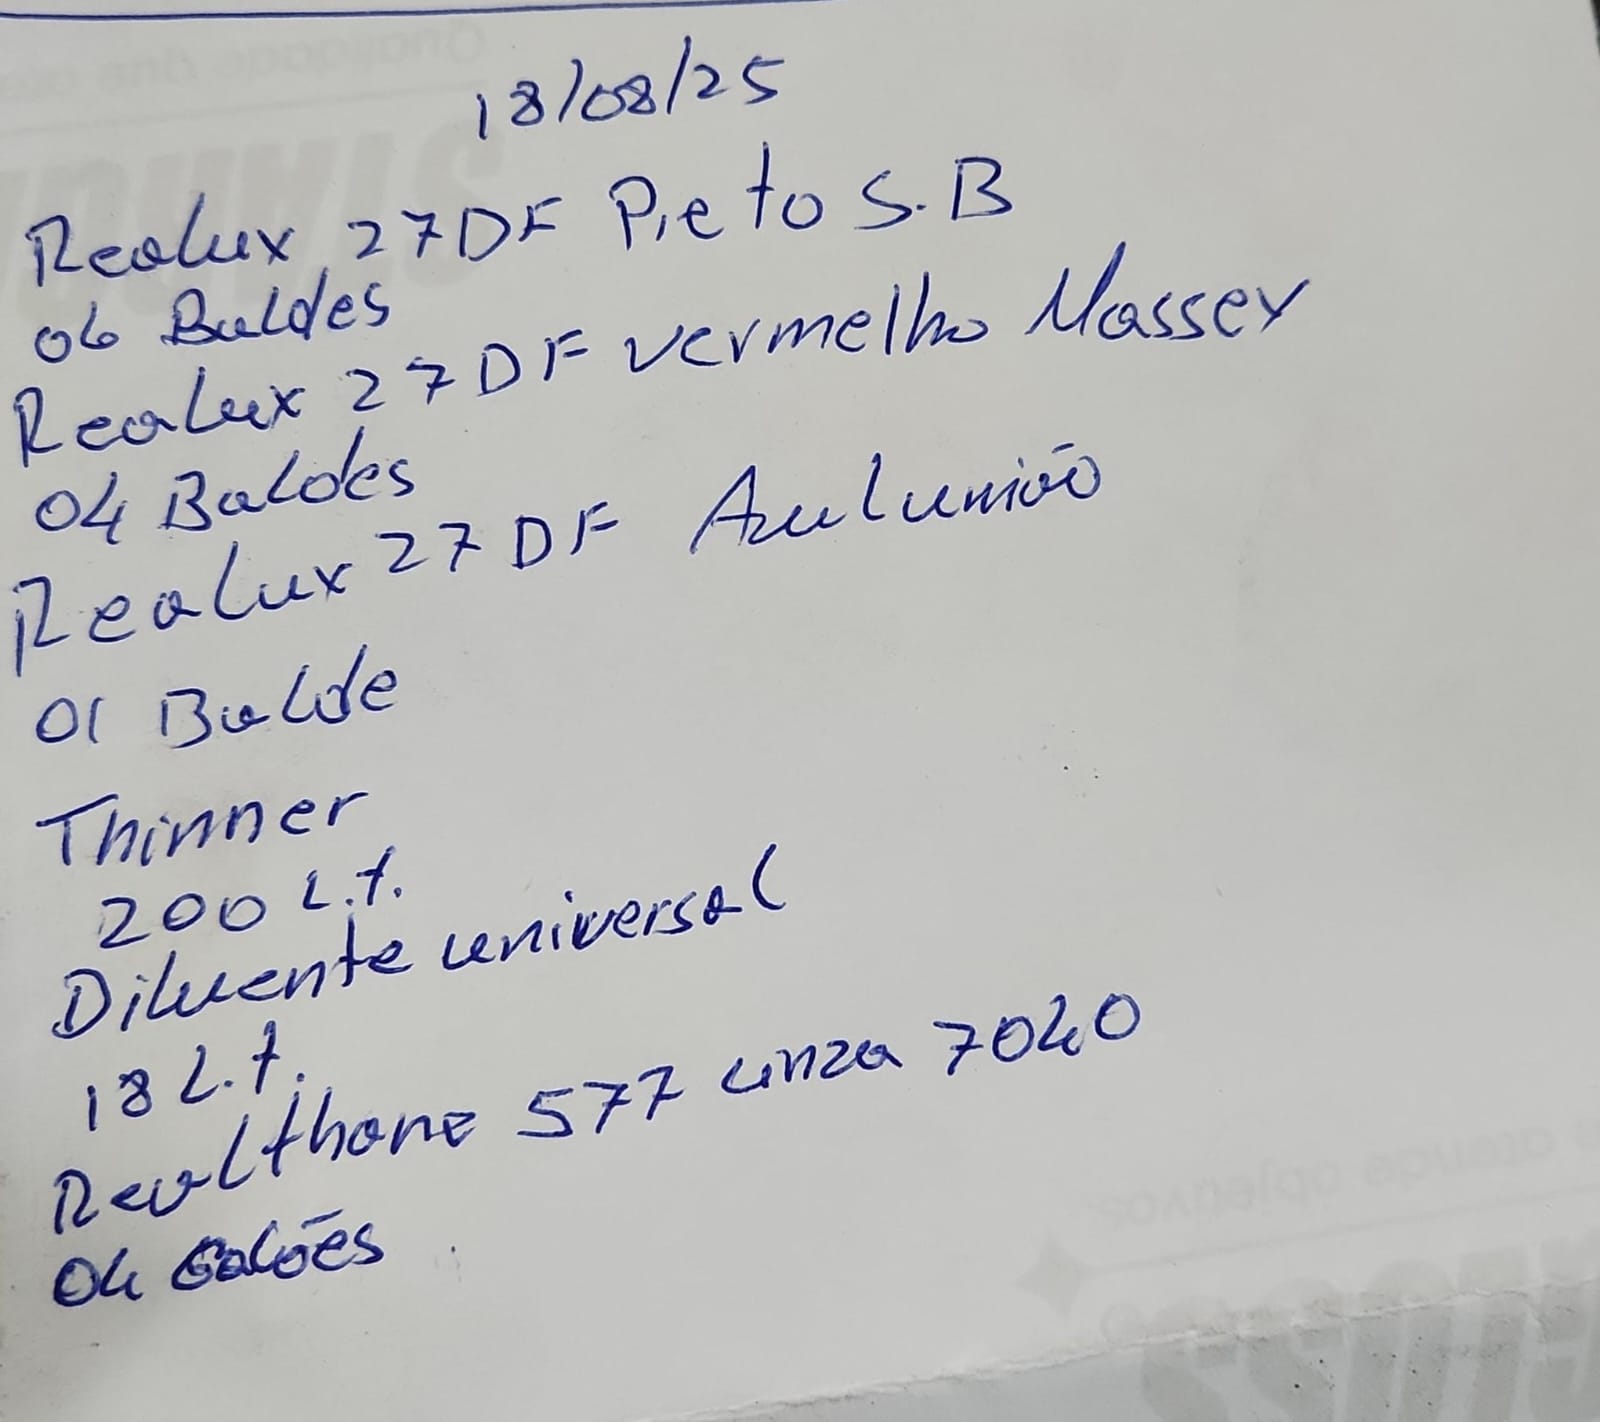 18/08/25
Realux 27DF Preto S.B
06 Baldes
Realux 27DF vermelho Massey
04 Baldes
Realux 27DF Azul união
01 Balde
Thinner
200 L.t.
Diluente universal
18 L.t.
Realthane 577 cinza 7040
04 Galões